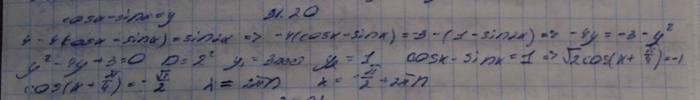 cosx-sinx=y 31.20
4-4(cosx-sinx)=sin2x => -4(cosx-sinx)=-3-(1-sin2x) => -4y=-3-y²
y²-4y+3=0 D=2² y₁=3 y₂=1 cosx-sinx=1 => √2cos(x+π/4)=-1
cos(x+π/4)=-√2/2 x=2πn x=-π/2+2πn